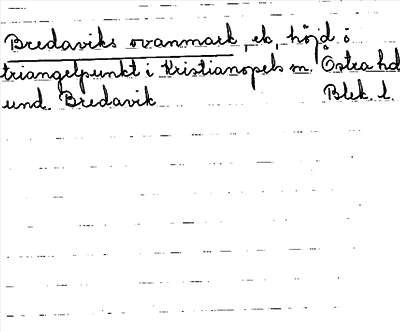 Bredaviks ovanmark, ek, höjd o
triangelpunkt i Kristianopels sn. Östra hd
und. Bredavik Blek. l.